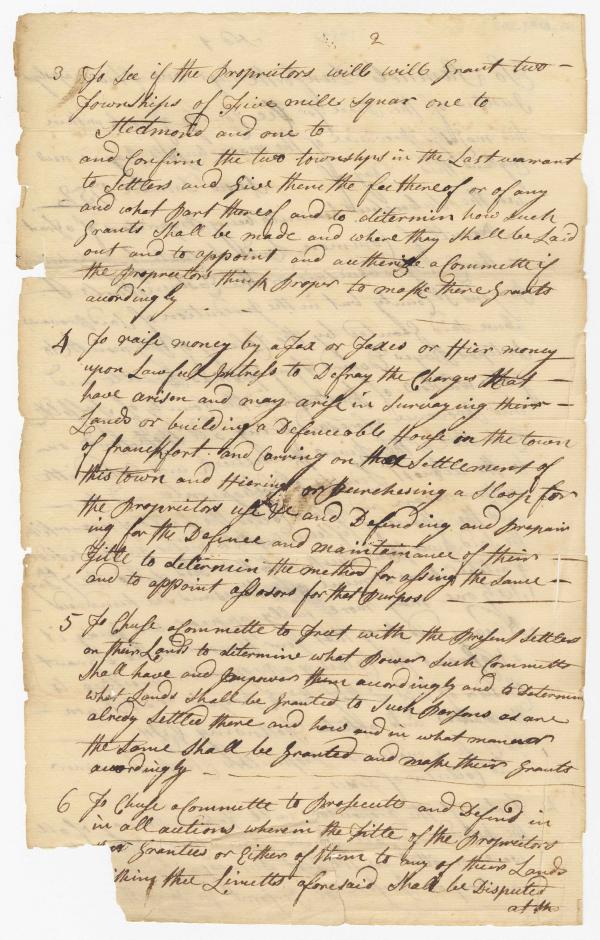 2
3 To See if the Proprietors will will Grant two
Townships of Five miles Squar one to
Hedmond and one to
and Confirm the two townships in the Last warrant
to Settlers and Give them the fee thereof or of any
and what Part thereof and to determin how such
Grants Shall be made and where they Shall be Laid
out and to appoint and authorize a Committe if
the Proprietors think Proper to make there Grants
acordingly
4 To raise money by a Tax or Taxes or Hier money
upon Lawfull Intress to Defray the Charges that
have arison and may arise in Surveying their
Lands or building a Defenceable House in the town
of franckfort and Carring on that Settlement of
this town and Hiering or purchesing a Sloop for
the Proprietors use and Defending and Prepair
ing for the Defence and maintainance of their
Title to determin the method for assing the Same
and to appoint assosors for that Purpos
5 To Chuse a Committe to Treet with the Present Settlers
on their Lands to determine what Power Such Committe
Shall have and Impower them acordingly and to Determin
what Lands Shall be Granted to Such Parsons as are
alredy Settled there and how and in what maner
the Same Shall be Granted and make their Grants
acordingly
6 To Chuse a Committe to Prosecute and Defend in
in all actions wherein the Title of the Proprietors
Grantees or Either of them to any of their Lands
thing the Limetts aforesaid Shall be Disputed
at the